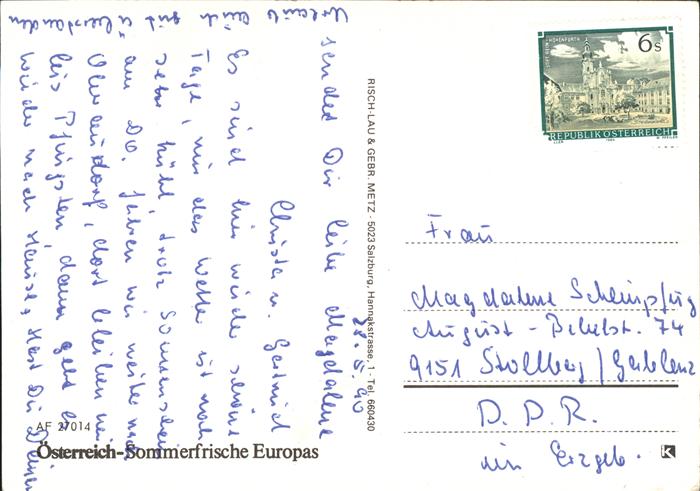 28.5.90
sendet Dir liebe Magdalene
Christa u. Gertrud
Es sind hier wieder schöne
Tage, nur das Wetter ist noch
sehr kühl, trotz Sonnenschein
am Do. fahren wir weiter nach
dort bleiben wir
bis Pfingsten, dann geht es
wieder nach Hause. Hast Du Deinen
Urlaub auch gut überstanden
AF 27014
Österreich-Sommerfrische Europas
RISCH-LAU & GEBR. METZ - 5023 Salzburg, Hannakstrasse, 1 - Tel. 660430
STIFT REIN-HOHENFURTH
6 S
REPUBLIK ÖSTERREICH
Frau
Magdalene Schimpfung
August-Bebelstr. 74
9151 Stollberg/Gablenz
D. D. R.
im Erzgeb.
K